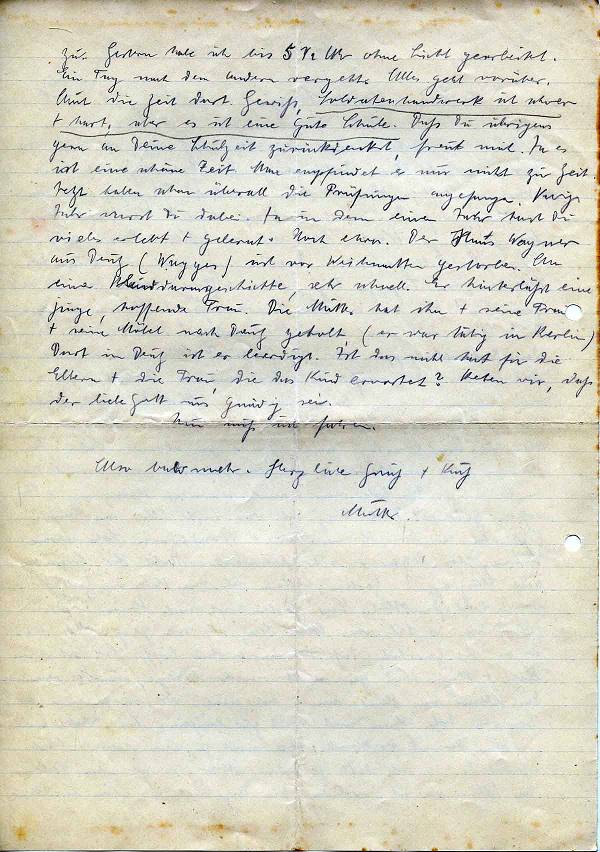 zu. Gestern habe ich bis 5 1/2 Uhr ohne Licht gearbeitet.
Ein Tag nach dem andern vergeht. Alles geht vorüber.
Auch die Zeit dort. Gewiss, Soldatenhandwerk ist schwer
+ hart, aber es ist eine gute Schule. Daß du übrigens
gern an Deine Schulzeit zurückdenkst, freut mich. Ja es
ist eine schöne Zeit. Man empfindet es nur nicht zur Zeit.
Jetzt haben schon überall die Prüfungen angefangen. Voriges
Jahr warst du dabei. Ja in dem einen Jahr hast Du
vieles erlebt + gelernt. Noch etwas. Der Hans Wagner
aus (Wagges) ist vor Weihnachten gestorben. An
eine geschichte, sehr schnell. Er hinterlässt eine
junge, hoffende Frau. Die Mutter hat ihn + seine Frau
+ seine Möbel nach geholt (er war tätig in Berlin)
Dort in ist er beerdigt. Ist das nicht hart für die
Eltern + die Frau, die das Kind erwartet? Beten wir, daß
der liebe Gott uns gnädig sei.
Nun muß ich
Also bald mehr. Herzliche Gruß + Kuß
Mutter.